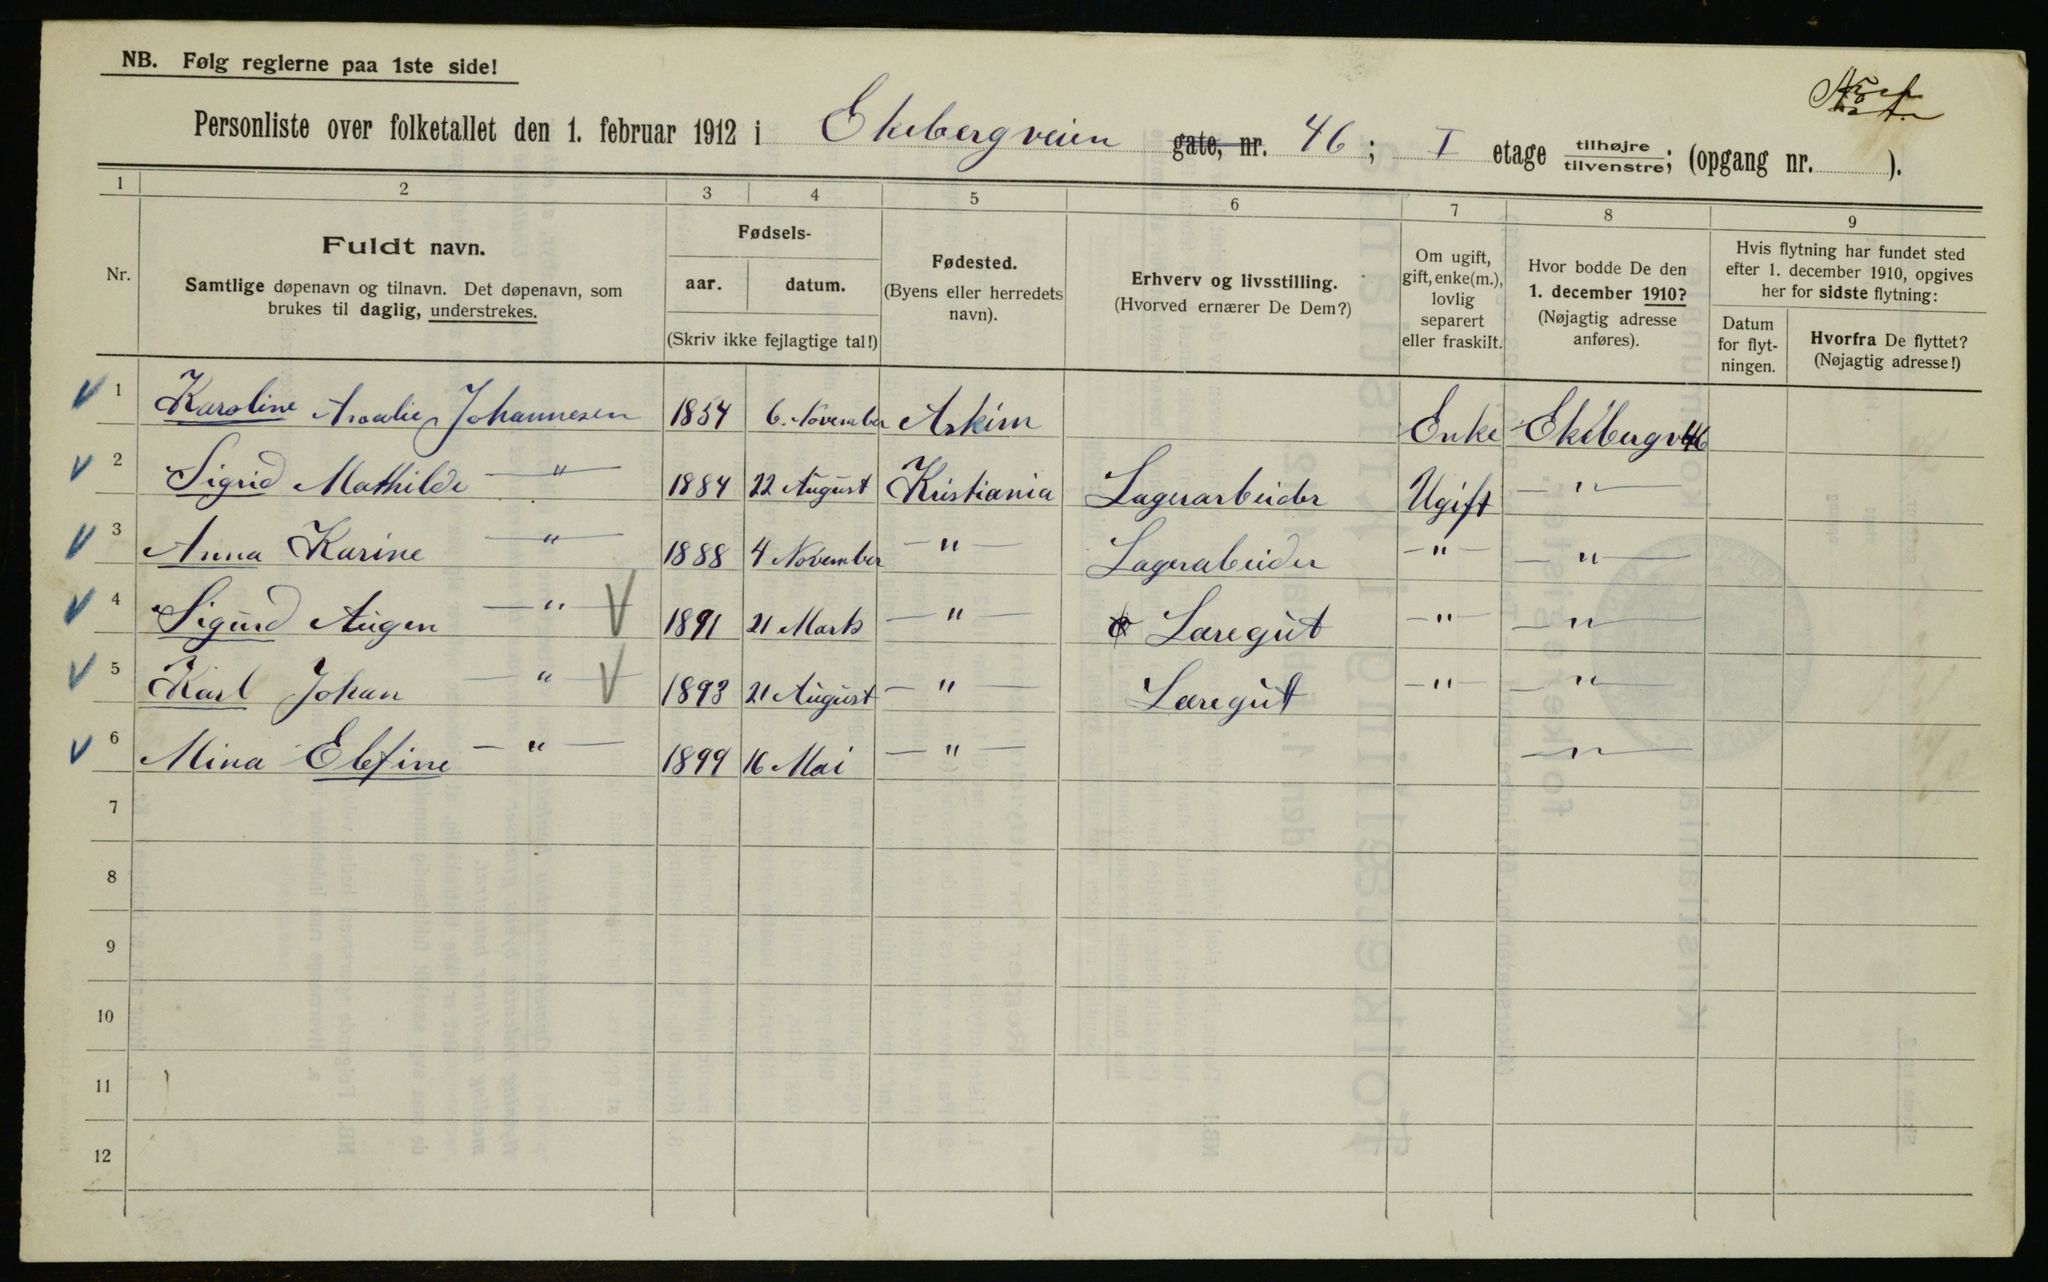 NB. Følg reglerne paa 1ste side!
Personliste over folketallet den 1. februar 1912 i Ekebergveien gate, nr. 46; I etage tilhøjre/tilvenstre; (opgang nr. ).
1 2 3 4 5 6 7 8 9
Nr.
Fuldt navn.
Samtlige døpenavn og tilnavn. Det døpenavn, som
brukes til daglig, understrekes.
Fødsels-
aar. datum.
(Skriv ikke fejlagtige tal!)
Fødested.
(Byens eller herredets
navn).
Erhverv og livsstilling.
(Hvorved ernærer De Dem?)
Om ugift,
gift, enke(m.),
lovlig
separert
eller fraskilt.
Hvor bodde De den
1. december 1910?
(Nøjagtig adresse
anføres).
Hvis flytning har fundet sted
efter 1. december 1910, opgives
her for sidste flytning:
Datum
for flyt-
ningen.
Hvorfra De flyttet?
(Nøjagtig adresse!)
1 Karoline Amalie Johannesen 1854 6. November Askim Enke Ekebergv 46
2 Sigrid Mathilde — " — 1884 22 August Kristiania Lagerarbeider Ugift — " —
3 Anna Karine — " — 1888 4 November — " — Lagerabeider — " — — " —
4 Sigurd Augen — " — 1891 21 Marts — " — Læregut — " — — " —
5 Karl Johan — " — 1893 21 August — " — Læregut — " — — " —
6 Mina Elefine — " — 1899 16 Mai — " — — " —
7
8
9
10
11
12